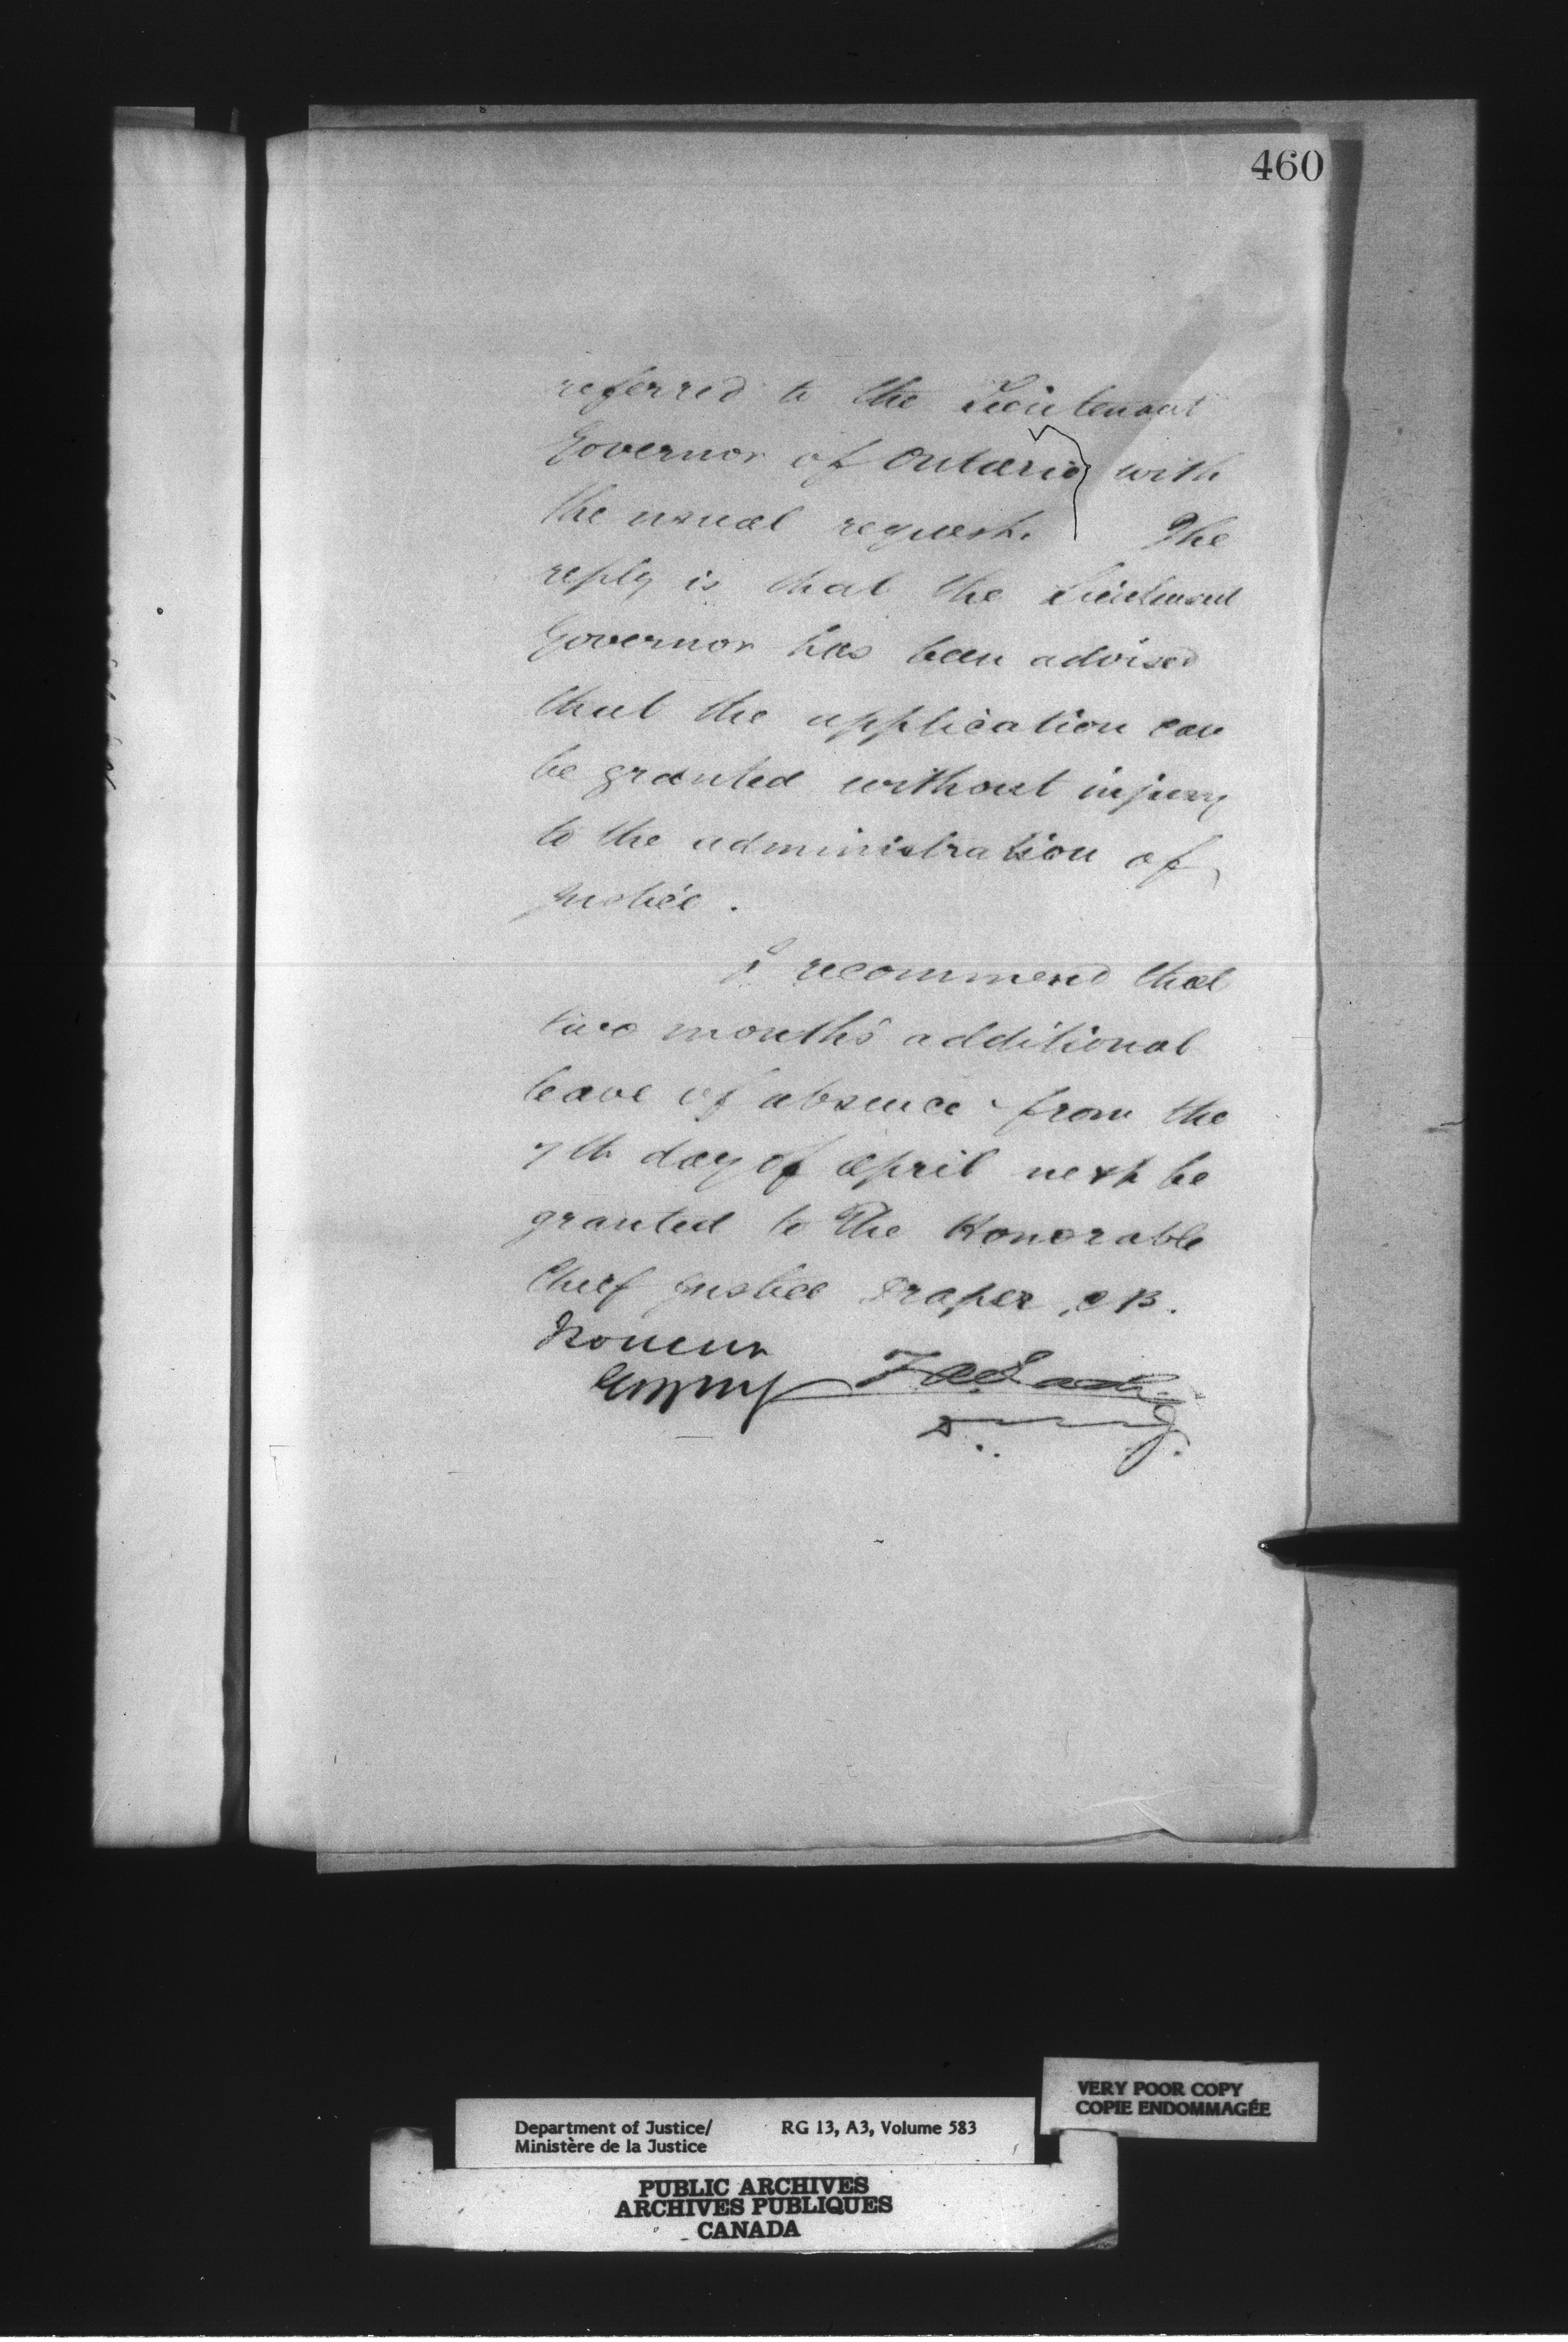 460
referred to the Lieutenant
Governor of Ontario with
the usual request. The
reply is that the Lieutenant
Governor has been advised
that the application can
be granted without injury
to the administration of
justice.
I recommend that
two month's additional
leave of absence from the
7th day of April next be
granted to The Honorable
Chief Justice Draper, C B.
I concur
Z A Lash
D. M. J.
VERY POOR COPY
COPIE ENDOMMAGÉE
Department of Justice/ RG 13, A3, Volume 583
Ministère de la Justice
PUBLIC ARCHIVES
ARCHIVES PUBLIQUES
CANADA